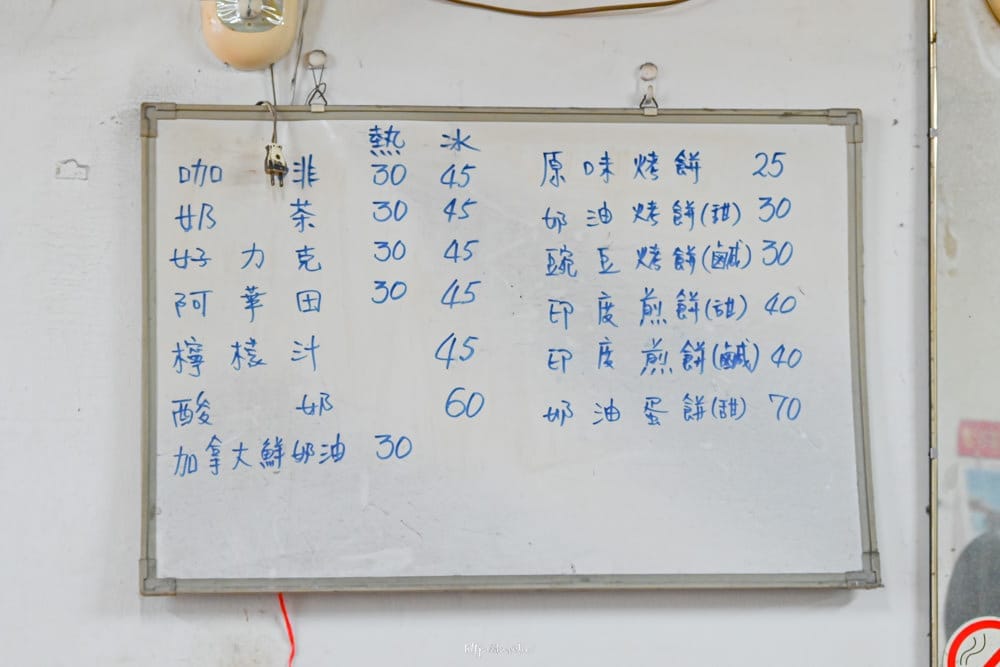 熱 冰
咖 非 30 45
奶 茶 30 45
好 力 克 30 45
阿 華 田 30 45
檸 檬 汁 45
酸 奶 60
加拿大鮮奶油 30
原 味 烤 餅 25
奶 油 烤 餅(甜) 30
豌 豆 烤 餅(鹹) 30
印 度 煎 餅(甜) 40
印 度 煎 餅(鹹) 40
奶 油 蛋 餅(甜) 70